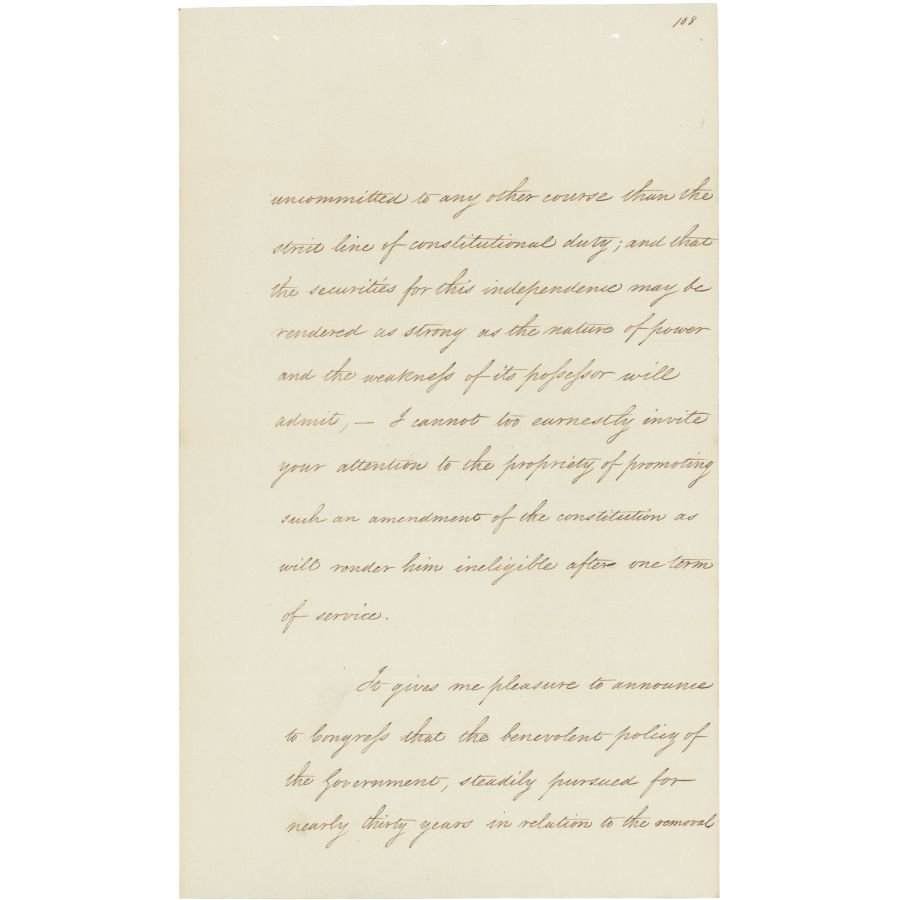 108
uncommitted to any other course than the
strict line of constitutional duty; and that
the securities for this independence may be
rendered as strong as the nature of power
and the weakneſs of its poſseſsor will
admit, — I cannot too earnestly invite
your attention to the propriety of promoting
such an amendment of the constitution as
will render him ineligible after one term
of service.
It gives me pleasure to announce
to Congreſs that the benevolent policy of
the Government, steadily pursued for
nearly thirty years in relation to the removal